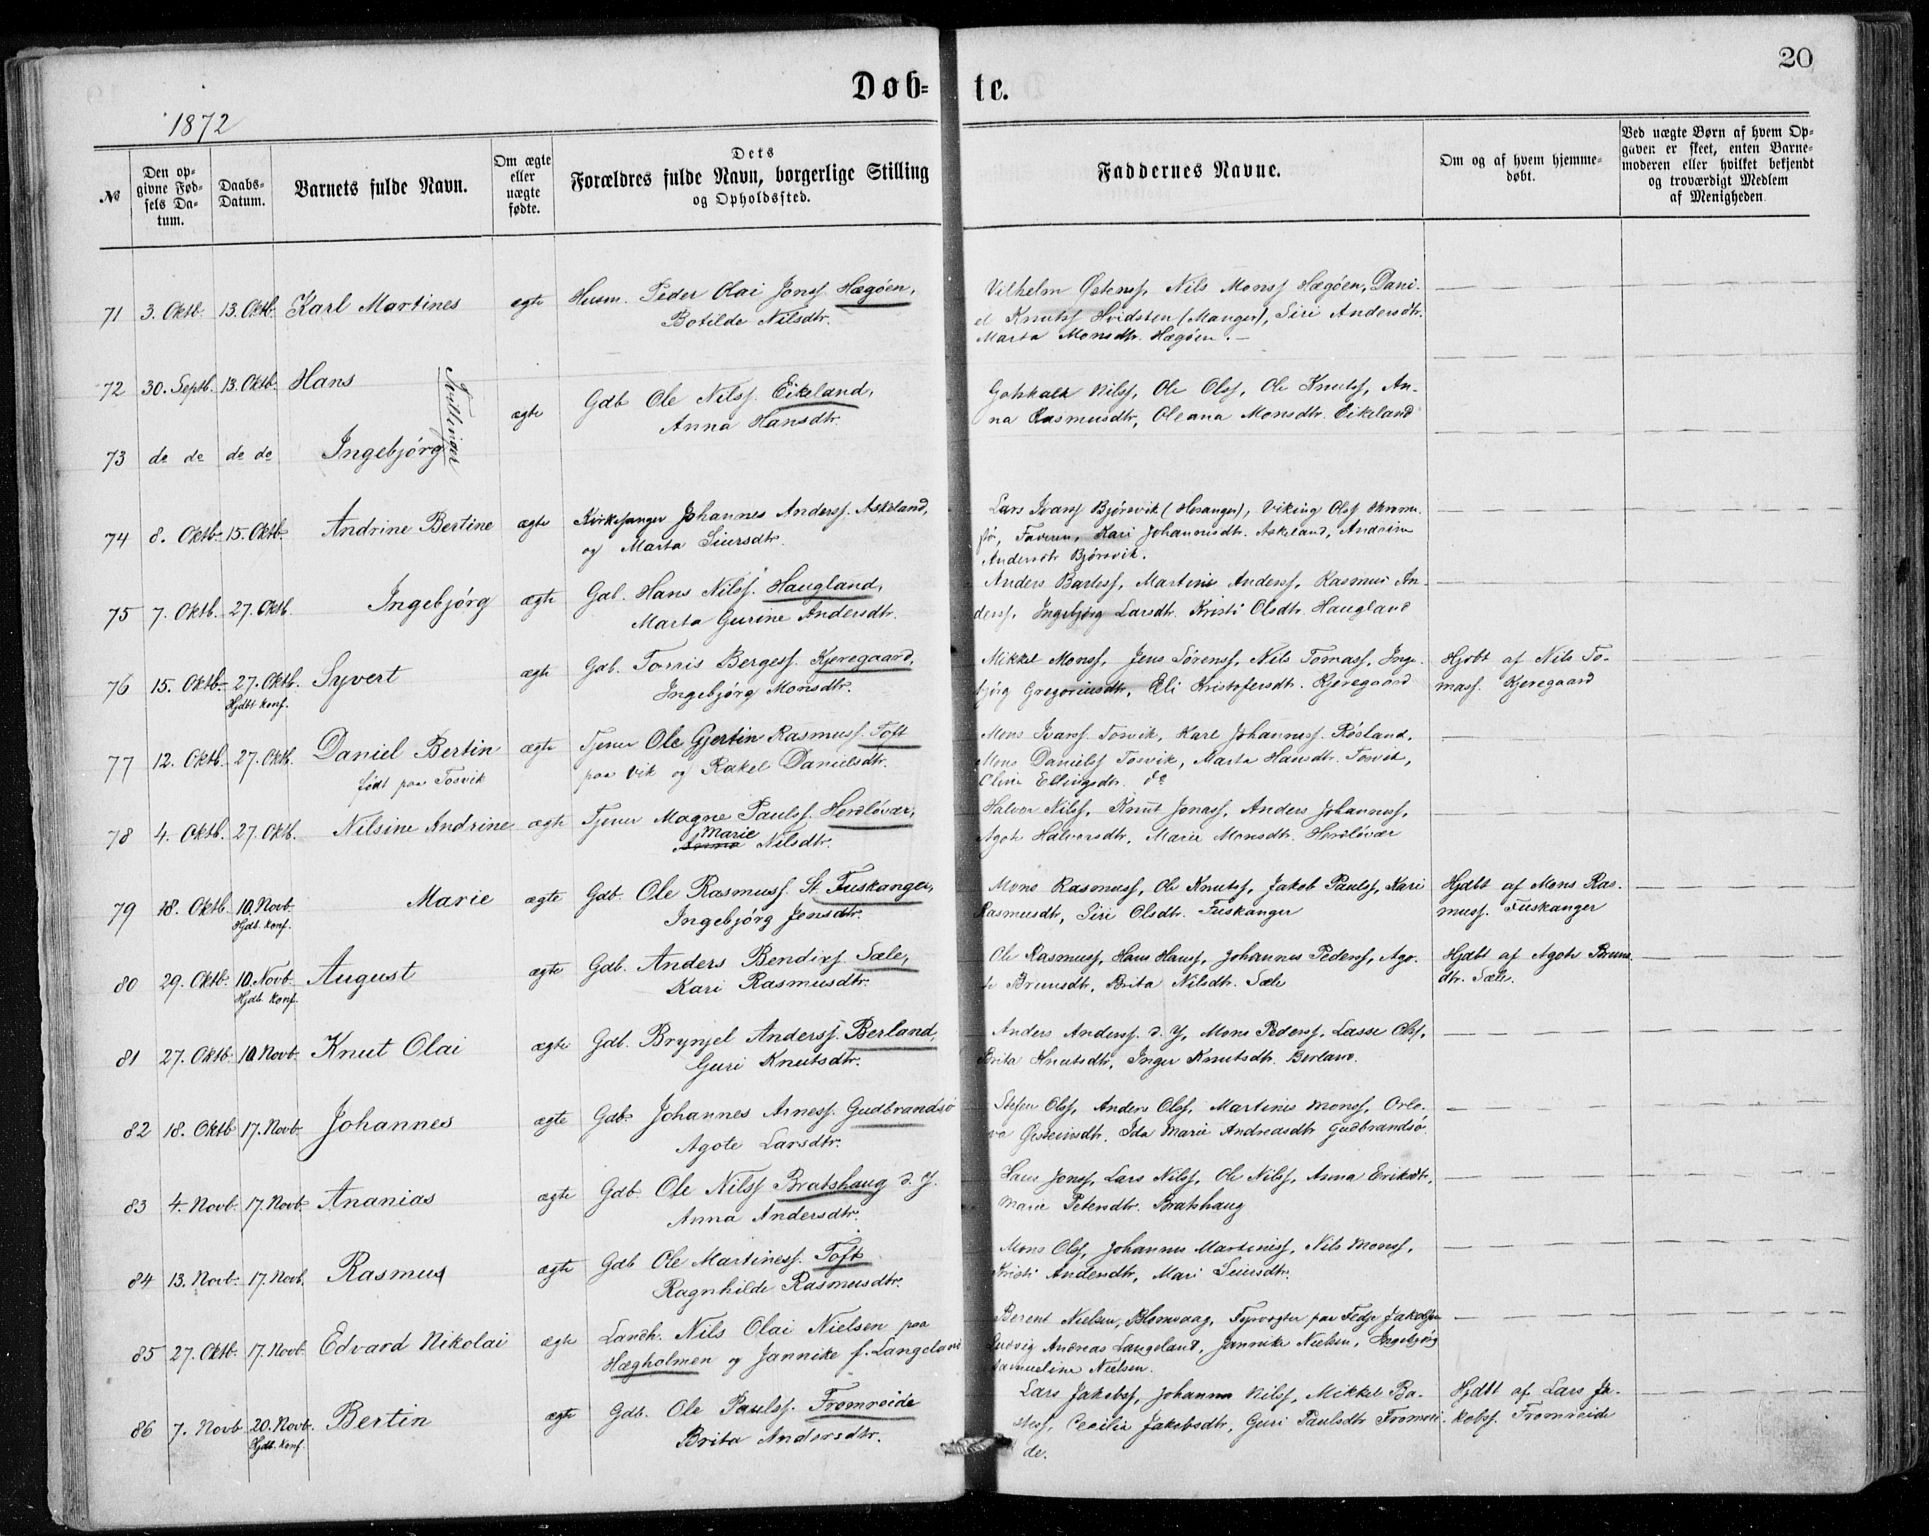 20
Døb- te.
1872
№
Den opgivne Fødsels Datum.
Daabs-Datum.
Barnets fulde Navn.
Om ægte eller uægte fødte.
Dets Forældres fulde Navn, borgerlige Stilling og Opholdssted.
Faddernes Navne.
Om og af hvem hjemmedøbt.
Ved uægte Børn af hvem Opgaven er skeet, enten Barnemoderen eller hvilket bekjendt og troværdigt Medlem af Menigheden.
71 3. Oktb. 13. Oktb. Karl Martines ægte Husm. Peder Olai Jonsf. Hægøen,
Botilde Nilsdtr.
Vilhelm Østensf, Nils Monsf Hægøen, Dani-
el Knutsf Hvidsten (Manger), Siri Andersdtr.
Marta Monsdtr. Hægøen.
72 30. Septb. 13. Oktb. Hans
Tvillinger
ægte Gdb Ole Nilsf. Eikeland,
Anna Hansdtr.
Gotskalk Nilsf, Ole Olsf, Ole Knutsf, An-
na Rasmusdtr, Oleana Monsdtr. Eikeland
73 do do do do Ingebjørg
74 8. Oktb. 15. Oktb. Andrine Bertine ægte Kirkesanger Johannes Andersf. Askeland,
og Marta Siursdtr.
Lars Ivarsf Bjørsvik (Hosanger), Viking Olsf
Kari Johannesdtr. Askeland, Andrine
Andersdtr Bjørsvik.
75 7. Oktb. 27. Oktb. Ingebjørg ægte Gdb. Hans Nilsf. Haugland,
Marta Gurine Andersdtr.
Anders Barlesf, Martines Andersf, Rasmus An-
dersf, Ingebjørg Larsdtr. Kristi Olsdtr. Haugland
76 15. Oktb. 27. Oktb. Syvert ægte Gdb. Tomis Bergesf. Kjeregaard,
Hjdbt konf.
Ingebjørg Monsdtr.
Mikkel Monsf, Jens Sørensf, Nils Tomasf, Inge-
bjørg Gregoriusdtr, Eli Kristofersdtr. Kjeregaard
Hjdbt af Nils To-
masf. Kjeregaard
77 12. Oktb. 27. Oktb. Daniel Bertin ægte Tjener Ole Gjertin Rasmusf. Toft
født paa Tosvik
paa Vik og Rakel Danielsdtr.
Mons Ivarsf. Tosvik, Karl Johannesf. Røsland,
Mons Danielsf Tosvik, Marta Hansdtr. Tosvik,
Oline Ellingsdtr. do
78 4. Oktb. 27. Oktb. Nilsine Andrine ægte Tjener Magne Paulsf. Herdløvær,
Marie
Nilsdtr.
Halvor Nilsf, Knut Jonasf, Anders Johannesf,
Agote Halvorsdtr, Marie Monsdtr. Herdløvær
79 18. Oktb. 10. Novb. Marie ægte Gdb. Ole Rasmusf. St. Fuskanger,
Hjdbt. konf.
Ingebjørg Jensdtr.
Mons Rasmusf, Ole Knutsf, Jakob Paulsf, Kari
Rasmusdtr, Siri Olsdtr. Fuskanger
Hjdbt af Mons Ras-
musf. Fuskanger
80 29. Oktb. 10. Novb. August ægte Gdb. Anders Bendixf. Sæle,
Hjdbt. konf.
Kari Rasmusdtr.
Ole Rasmusf, Hans Hansf, Johannes Pedersf, Ago-
te Brunsdtr, Brita Nilsdtr. Sæle
Hjdbt af Agote Bruns-
dtr. Sæle.
81 27. Oktb. 10. Novb. Knut Olai ægte Gdb. Brynjel Andersf. Berland,
Guri Knutsdtr.
Anders Andersf. d. Y, Mons Pedersf, Lasse Olsf,
Brita Knutsdtr, Inger Knutsdtr. Berland.
82 18. Oktb 17. Novb. Johannes ægte Gdb. Johannes Arnesf. Gudbrandsø
Agote Larsdtr.
Stefen Olsf, Anders Olsf, Martines Monsf,
Østeinsdtr. Ida Marie Andreasdtr Gudbrandsø.
83 4. Novb. 17. Novb. Ananias ægte Gdb. Ole Nilsf Bratshaug d. Y.
Anna Andersdtr.
Hans Jonsf, Lars Nilsf, Ole Nilsf, Anna Eriksdtr,
Marie Petersdtr. Bratshaug
84 13. Novb. 17. Novb. Rasmus ægte Gdb Ole Martinesf. Toft
Ragnhilde Rasmusdtr.
Mons Olsf, Johannes Martinisf, Nils Monsf,
Kristi Andersdtr, Mari Siursdtr.
85 27. Oktb. 17. Novb. Edvard Nikolai ægte Landh. Nils Olai Nielsen paa
Hægholmen og Jannike f. Langeland
Berent Nielsen, Blomvaag, Fyrvogter paa Fedje Jakobsen
Ludvig Andreas Langeland, Jannike Nielsen, Ingebjørg
Samueline Nielsen.
86 7. Novb 20. Novb. Bertin ægte Gdb. Ole Paulsf. Fromreide
Hjdbt. konf.
Brita Andersdtr.
Lars Jakobsf, Johannes Nilsf, Mikkel Ba-
Cecilia Jakobsdtr, Guri Paulsdtr Fromrei-
de.
Hjdbt af Lars Ja-
kobsf. Fromreide